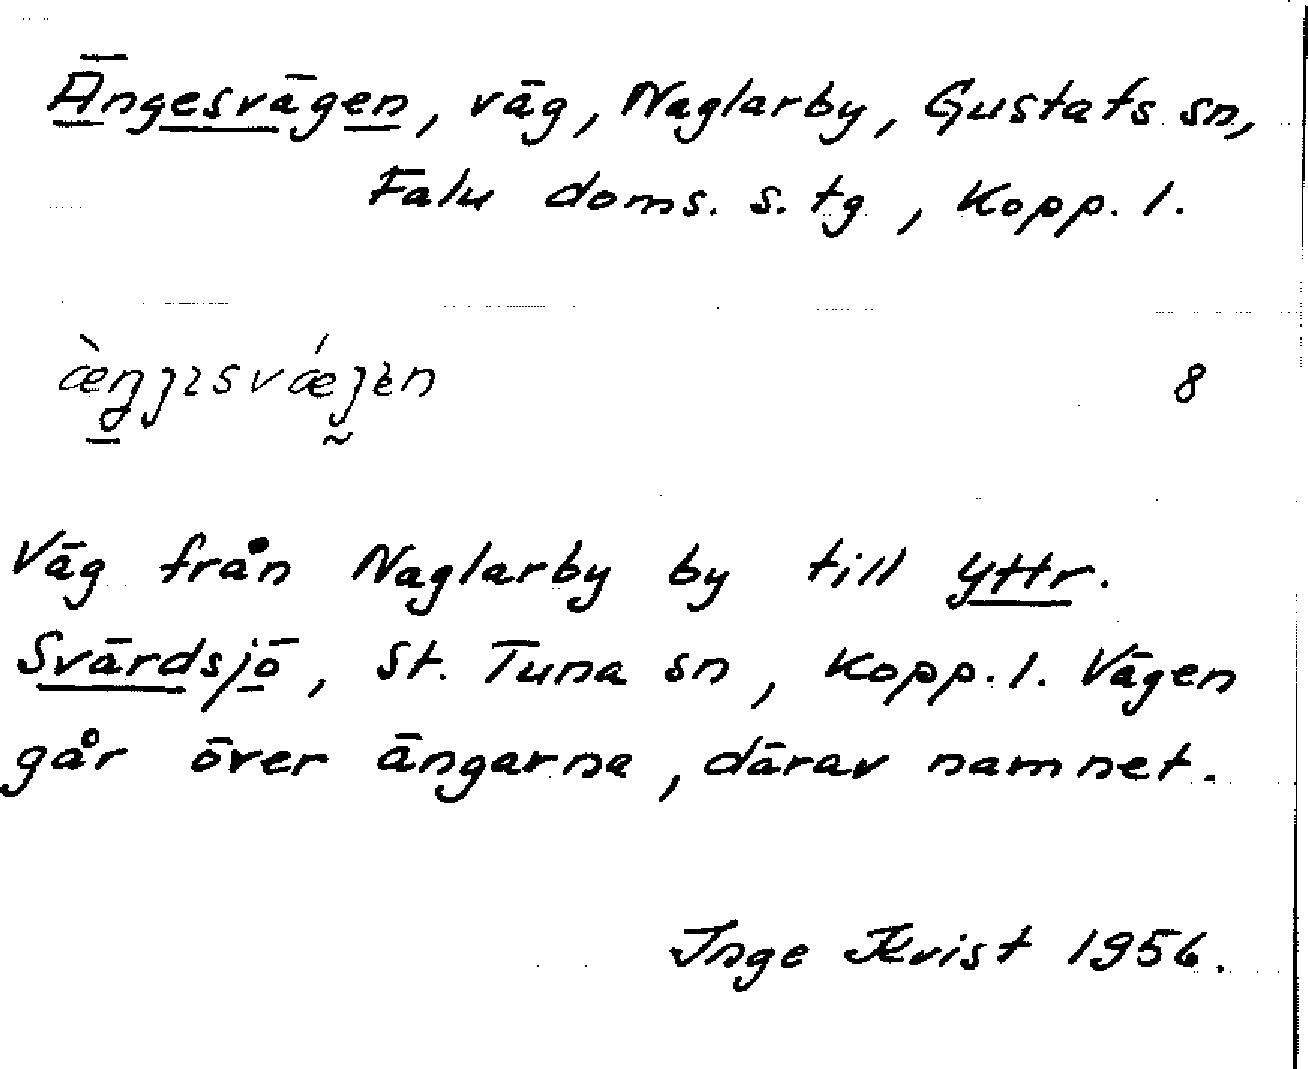 Ängesvägen, väg, Naglarby, Gustafs sn,
Falu doms. s. tg, Kopp. l.
æ̀ŋȷɪsvǽȷɛ̀n 8
Väg från Naglarby by till Yttr.
Svärdsjö, St. Tuna sn, Kopp. l. Vägen
går över ängarna, därav namnet.
Inge Kvist 1956.